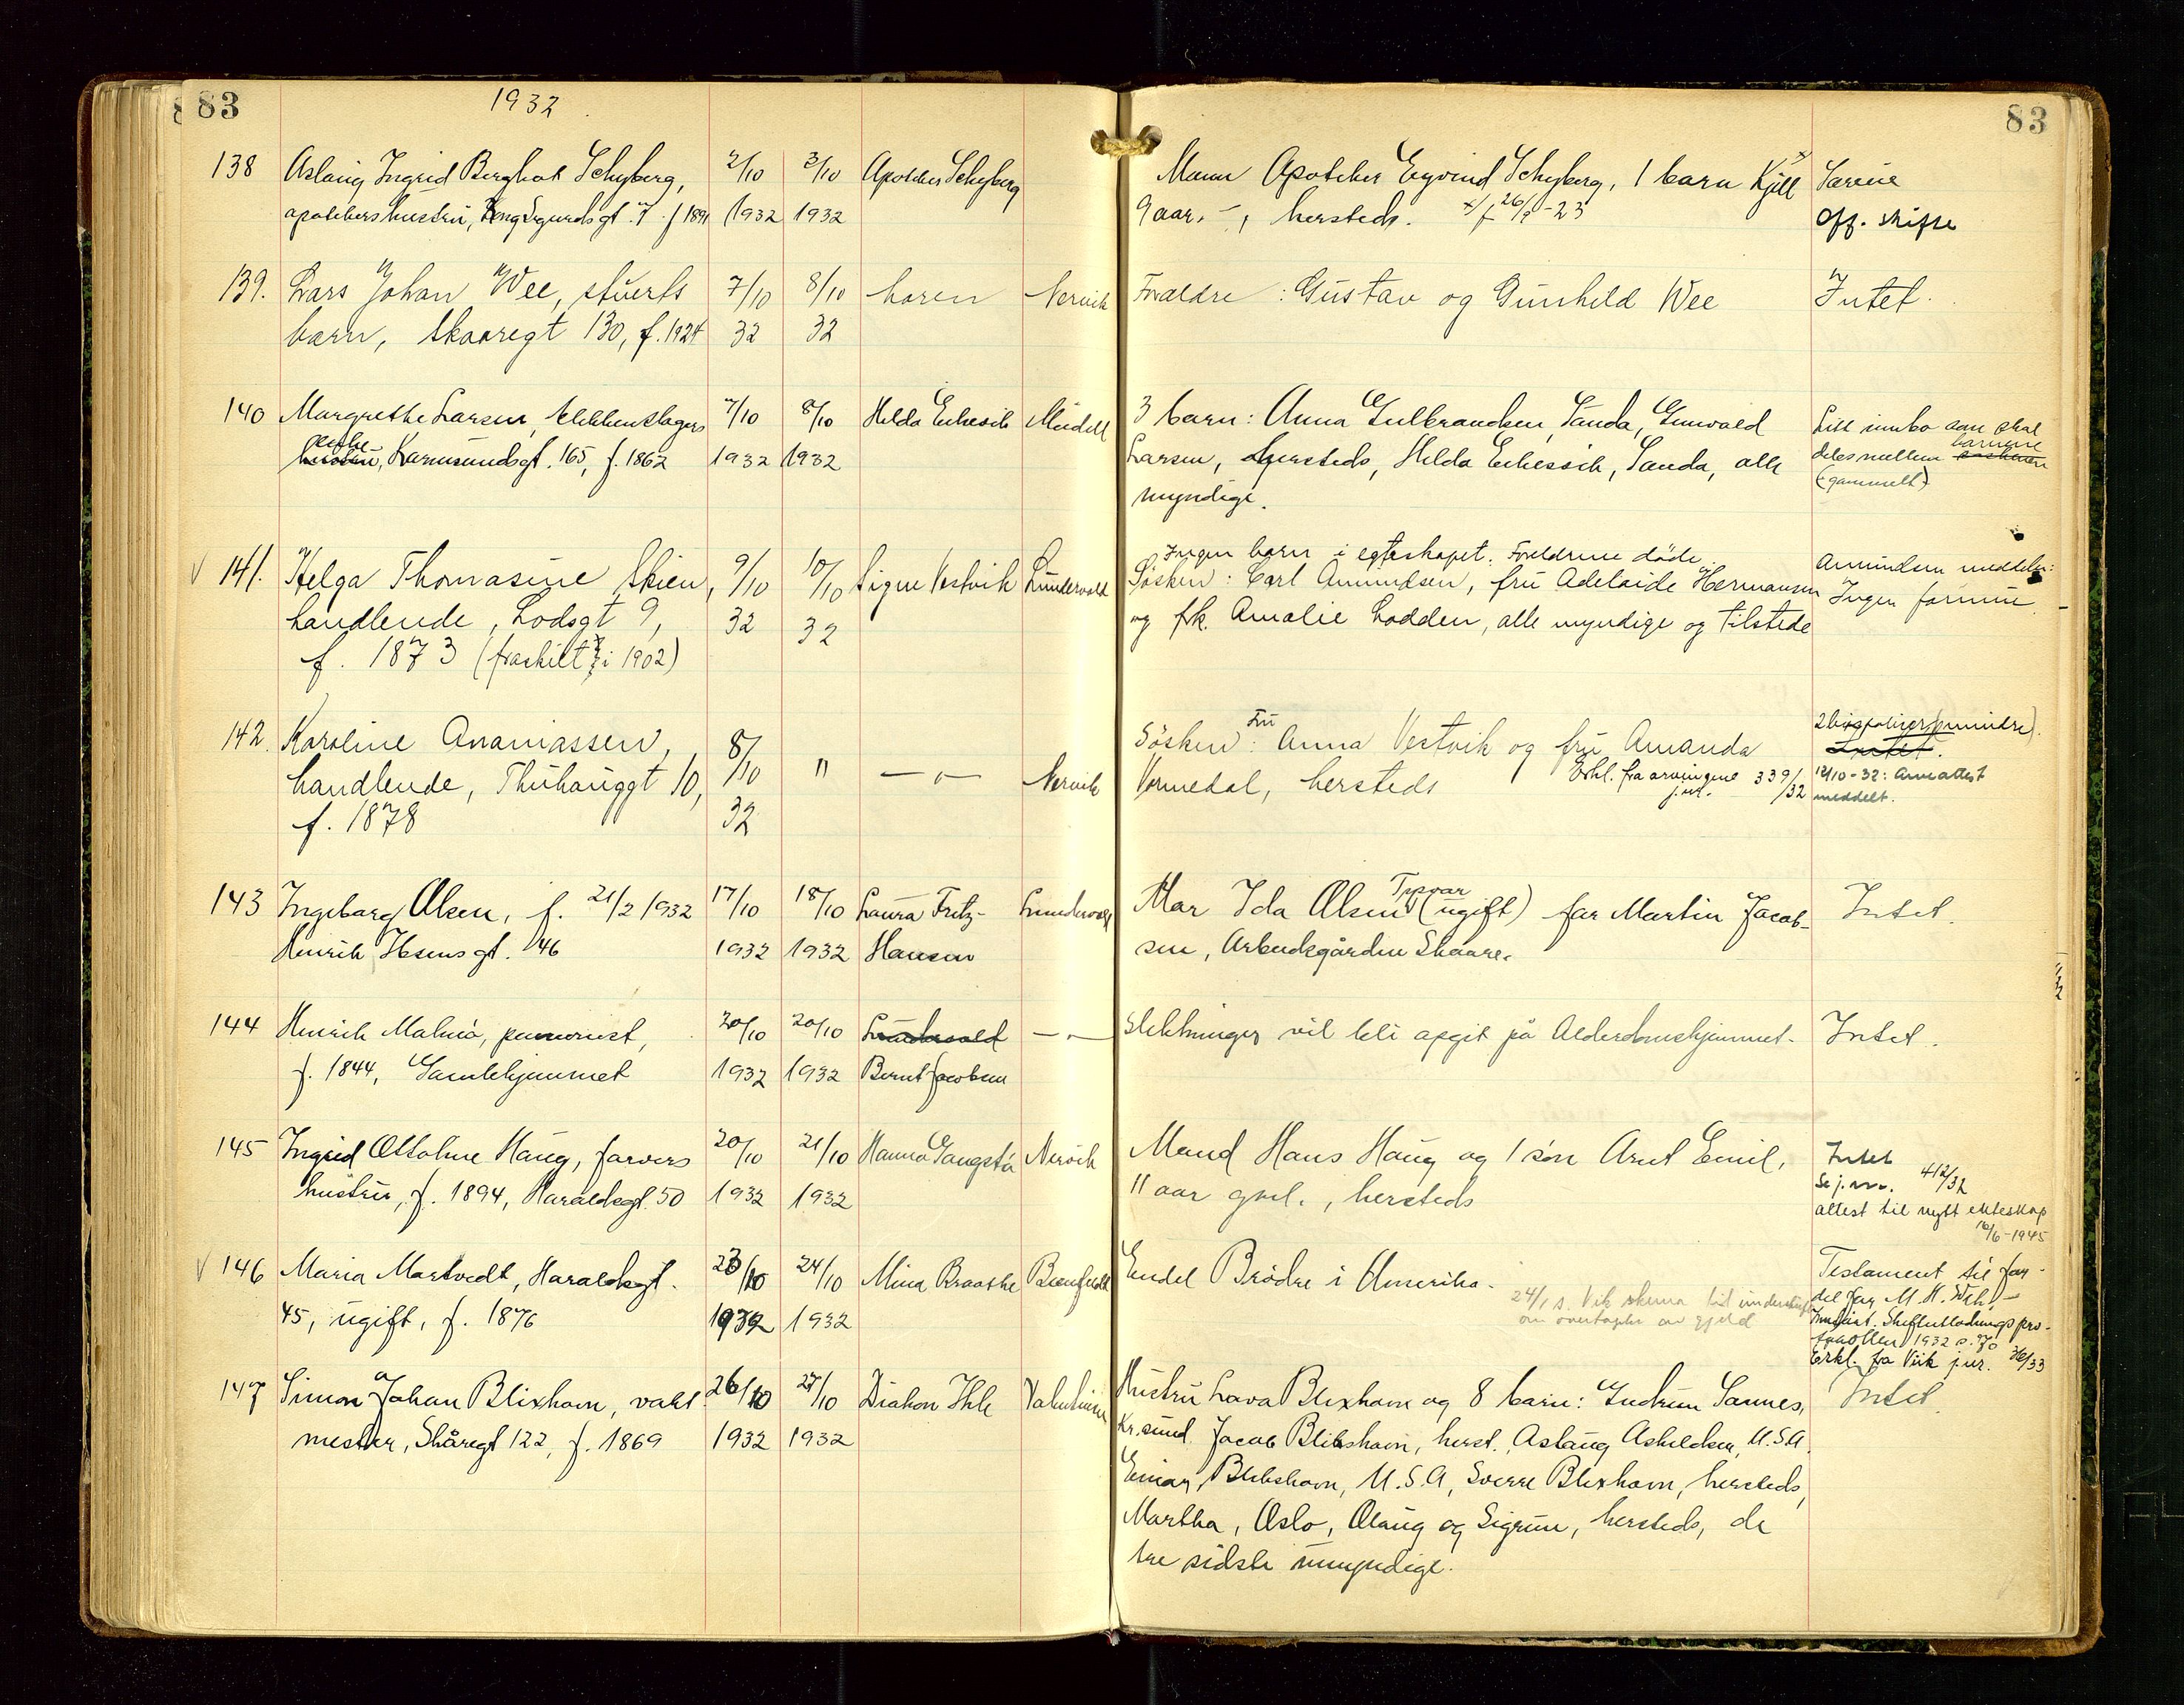 83
1932
83
138 Aslaug Ingrid Berghot Schyberg, 2/10 3/10 Apoteker Schyberg
apothekers hustru, Kong Sigurds gt. 7 f 1891 1932 1932
Mann Apotheker Eyvind Schyberg, 1 barn Kjell x
9 aar. -, hersteds. x/ f 26/9-23
Særeie
Off. skifte
139. Lars Johan Wee, stuerts 7/10 8/10 Faren Nervik
barn, Skaaregt 130, f. 1924 32 32
Foreldre: Gustav og Gunhild Wee
Intet.
140 Margrethe Larsen, blikkenslagers 7/10 8/10 Helda Meidell
enke hustru, Karmsundsgt. 165, f. 1862 1932 1932
3 barn: Anna Gulbrandsen, Sauda, Gunvald
Larsen, hersteds, Helda Sauda, alle
myndige.
Litt innbo som skal
deles mellem barnene
(gammelt)
141. Helga Thomasine Skien, 9/10 10/10 Signe Vestvik Lundevold
handlende, Lodsgt 9, 32 32
f. 1873 (fraskilt i 1902)
Ingen barn i egteskapet. Foreldrene døde.
Søsken: Carl Amundsen, fru Adelaide Hermansen
og frk. Amalie Lodden, alle myndige og tilstede
Amundsen meddeler:
Ingen formue.
142. Karoline Ananiassen, 8/10 " — " — Nervik
handlende, Thuhauggt 10, 32
f. 1878
Søsken: Fru Anna Vestvik og fru Amanda
Vormedal, hersteds
Erkl. fra arvingene 339/32
j.nr.
Intet.
12/10-32: Arveattest
meddelt.
143 Ingeborg Olsen, f. 21/2 1932 17/10 18/10 Laura Fritz- Lundevold
Henrik Ibsens gt. 46 1932 1932 Hansen
Mor Ida Olsen (ugift) far Martin Jacob-
sen, Arbeidsgården Skaare.
Intet.
144 Henrik Malmø, pensionist, 20/10 20/10 Lundevold — " —
f. 1844, Gamlehjemmet 1932 1932 Bernt Jacobsen
Slektninger vil bli opgit på Alderdomshjemmet.
Intet.
145 Ingrid Ottoline Haug, farvers 20/10 21/10 Hanna Gangstø Nervik
hustru, f. 1894, Haraldsgt. 50 1932 1932
Mand Hans Haug og 1 søn Arnt Emil,
11 aar gml., hersteds
Intet
Se j.nr. 412/32
attest til nytt ekteskap
16/6-1945
146 Maria Martvedt, Haraldsgt. 23/10 24/10 Mina Braathe
45, ugift, f. 1876 1932 1932
Endel Brødre i Amerika.
24/1 s. Vik
om overtagelse av gjeld
Testament til for-
del for M. H.
Skifteutlodningspro-
tokollen 1932 s. 70
Erkl. fra Vik j.nr. 36/33
147 Simon Johan Blixhavn, vakt 26/10 27/10 Diakon Ihle Valentinsen
mester, Skåregt 122, f. 1869 1932 1932
Hustru Lava Blixhavn og 8 barn: Gudrun Sannes,
Kr.sund. Jacob Blikshavn, herst., Aslaug Askildsen, U.S.A.
Einar Blikshavn, U.S.A, Sverre Blixhavn, hersteds,
Martha, Oslo, Olaug og Sigrun, hersteds, de
tre sidste umyndige.
Intet.